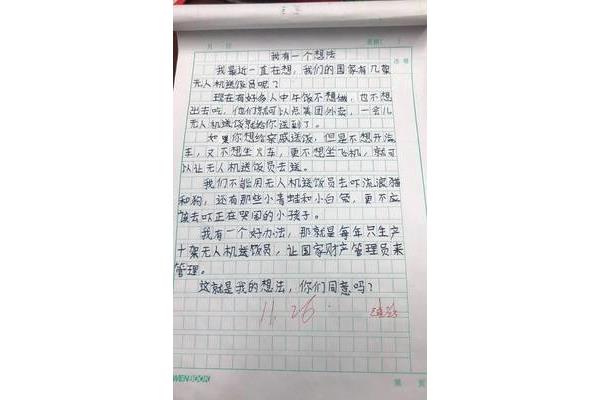 月 日
我有一个想法
我最近一直在想，我们的国家有几架
无人机送饭员呢？
现在有好多人中午饭不想做，也不想
出去吃，他们就可以点美团外卖，一会儿
无人机送饭就给你送到了。
如果你想给亲戚送饭，但是不想开汽
车，又不想坐火车，更不想坐飞机，就可
以让无人机送饭员去送。
我们不能用无人机送饭员去吓流浪猫
和狗，还有那些小青蛙和小白兔，更不应
该去吓正在哭闹的小孩子。
我有一个好办法，那就是每年只生产
十架无人机送饭员，让国家财产管理员来
管理。
这就是我的想法，你们同意吗？
11.26
WENBOOK
第 页